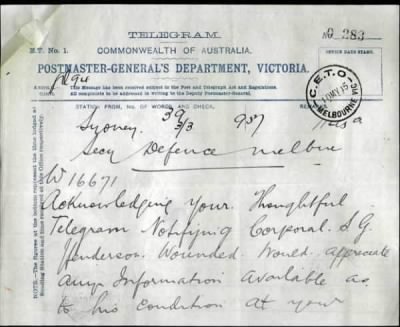 TELEGRAM.
No 283
E.T. No. 1. COMMONWEALTH OF AUSTRALIA.
OFFICE DATE STAMP.
POSTMASTER-GENERAL'S DEPARTMENT, VICTORIA.
This Message has been received subject to the Post and Telegraph Act and Regulations.
All complaints to be addressed in writing to the Deputy Postmaster-General.
STATION FROM, No. OF WORDS AND CHECK.
C.E.T.O.
10 MY 15
MELBOURNE VIC
Sydney. 39 3/3 957
Secy Defence Melbne
W 16671
Acknowledging your Thoughtful
Telegram Notifying Corporal. S G
Henderson. Wounded. Would. appreciate
any Information Available as
to his condition at your
NOTE.—The figures at the bottom represent the time lodged at
Sending Station and time received at this Office respectively.